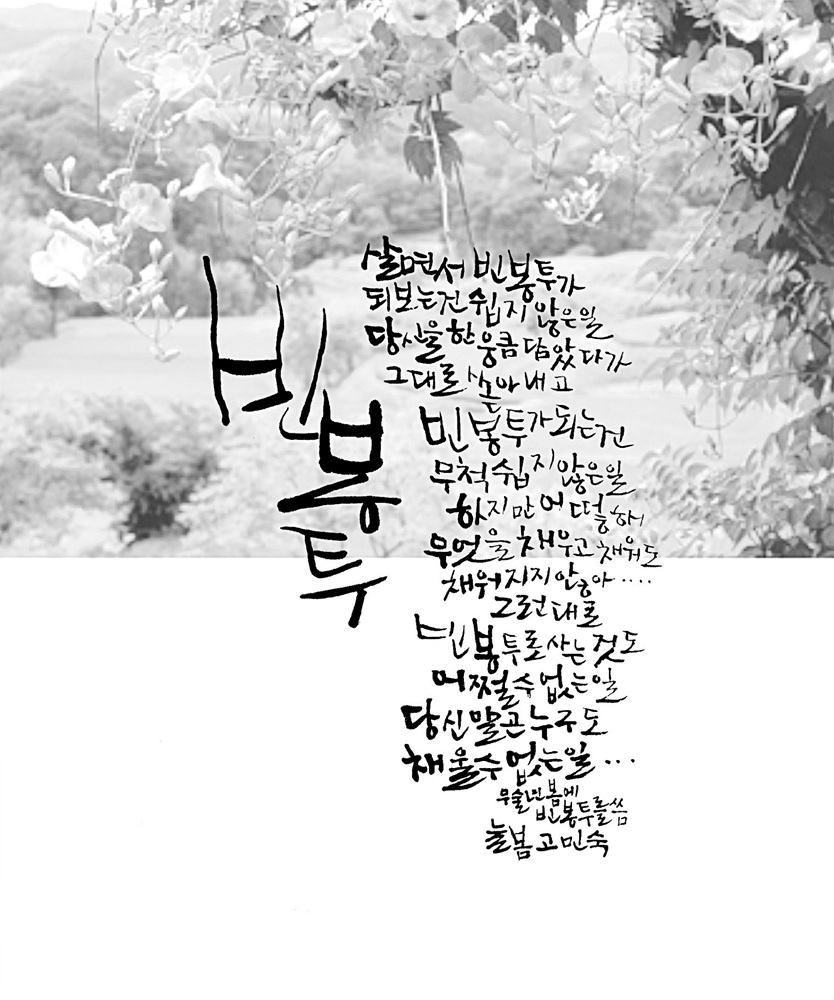 빈
봉
투
살면서 빈봉투가
되보는건 쉽지 않은일
당신을 한웅큼 담았다가
그대로 쏟아내고
빈봉투가 되는건
무척 쉽지않은일
하지만 어떻해
무엇을 채우고 채워도
채워지지 안놓아....
그런대로
빈봉투로 사는것도
어쩔수없는일
당신말곤 누구도
채울수없는일...
무술년 봄에
빈봉투를씀
늘봄 고민숙